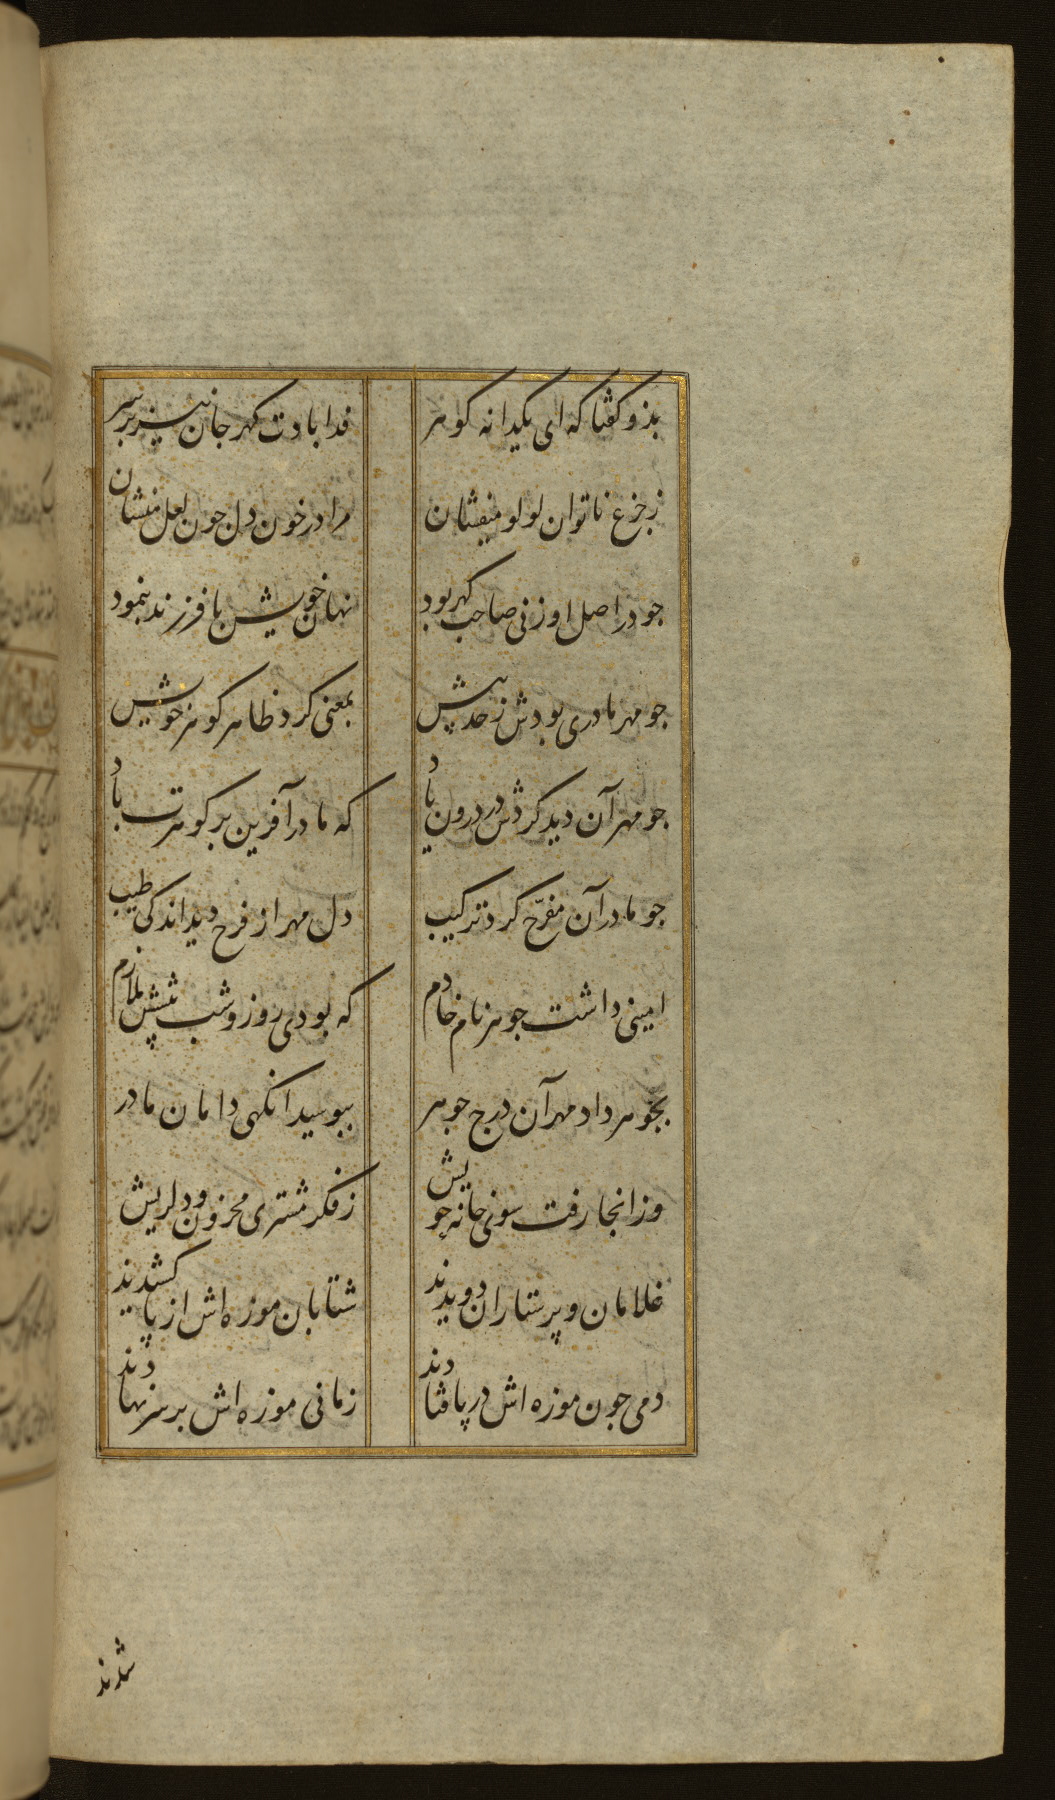 بذو گفتا که ای یکدانه گوهر فدا بادت گهر جان نیز بر سر
ز جزع ناتوان لولو میفشان مرا در خون دل جون لعل منشان
جو در اصل او زنی صاحب گهر بود نهان خویش با فرزند بنمود
جو مهر مادری بودش ز حد بیش بمعنی کرد ظاهر گوهر خویش
جو مهر آن دید کردش در درون یاد که مادر آفرین بر گوهرت باد
جو مادر آن مفرّح کرد ترکیب دل مهر از فرح دید اندکی طیب
امینی داشت جوهر نام خادم که بودی روز و شب پیشش ملازم
بجوهر داد مهر آن درج جوهر ببوسید انگهی دامان مادر
وز انجا رفت سوی خانه خویش ز فکر مشتری محزون و دلریش
غلامان و پرستاران دویدند شتابان موزه اش از پا کشیدند
دمی جون موزه اش در پا فتادند زمانی موزه اش بر سر نهادند
شدند